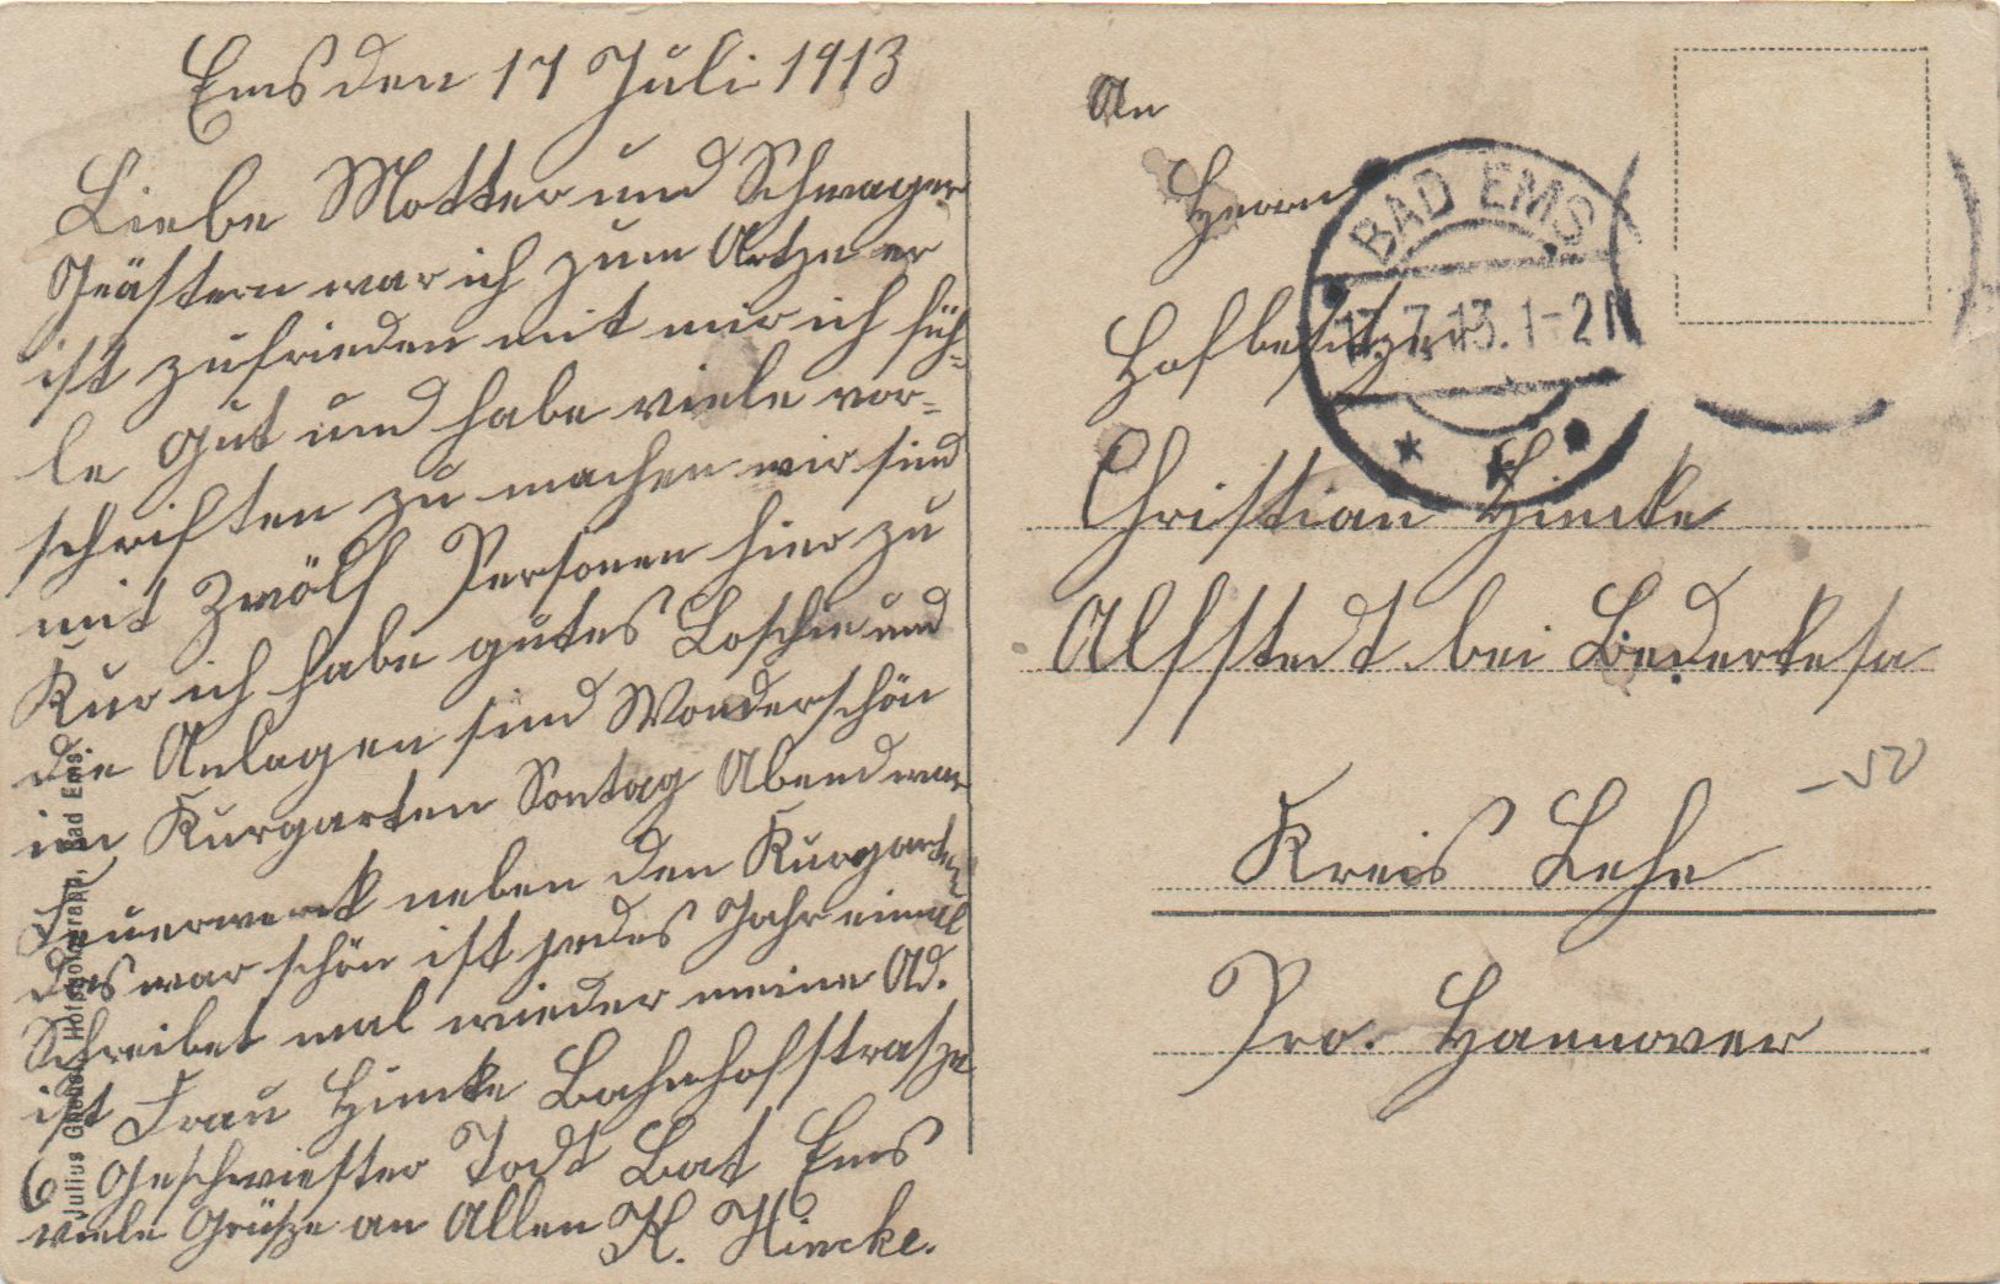 Ems den 17 Juli 1913
Liebe Motter und Schwager
Geästern war ich zum Artze er
ist zufrieden mit mir ich füh-
le Gut und habe viele vor-
schriften zu machen wir sind
mit Zwölf Personen hier zu
Kur ich habe gutes Loschie und
die Anlagen sind Wonderschön
im Kurgarten Sontag Abend war
Feuerwerk neben den Kurgarten
das war schön ist jedes Jahr einmal
Schreibet mal wieder meine Ad.
ist Frau Hincke Bahnhofstrasze
6 Geschwiester Todt Bat Ems
viele Grüsze an Allen K. Hincke.
Julius Hofphotograph, Bad Ems.
An
Herrn
Hofbesitzer
Christian Hincke
Alfstedt bei Bederkesa
Kreis Lehe
Pro. Hannover
BAD EMS
17.7.13.1-2N
-50